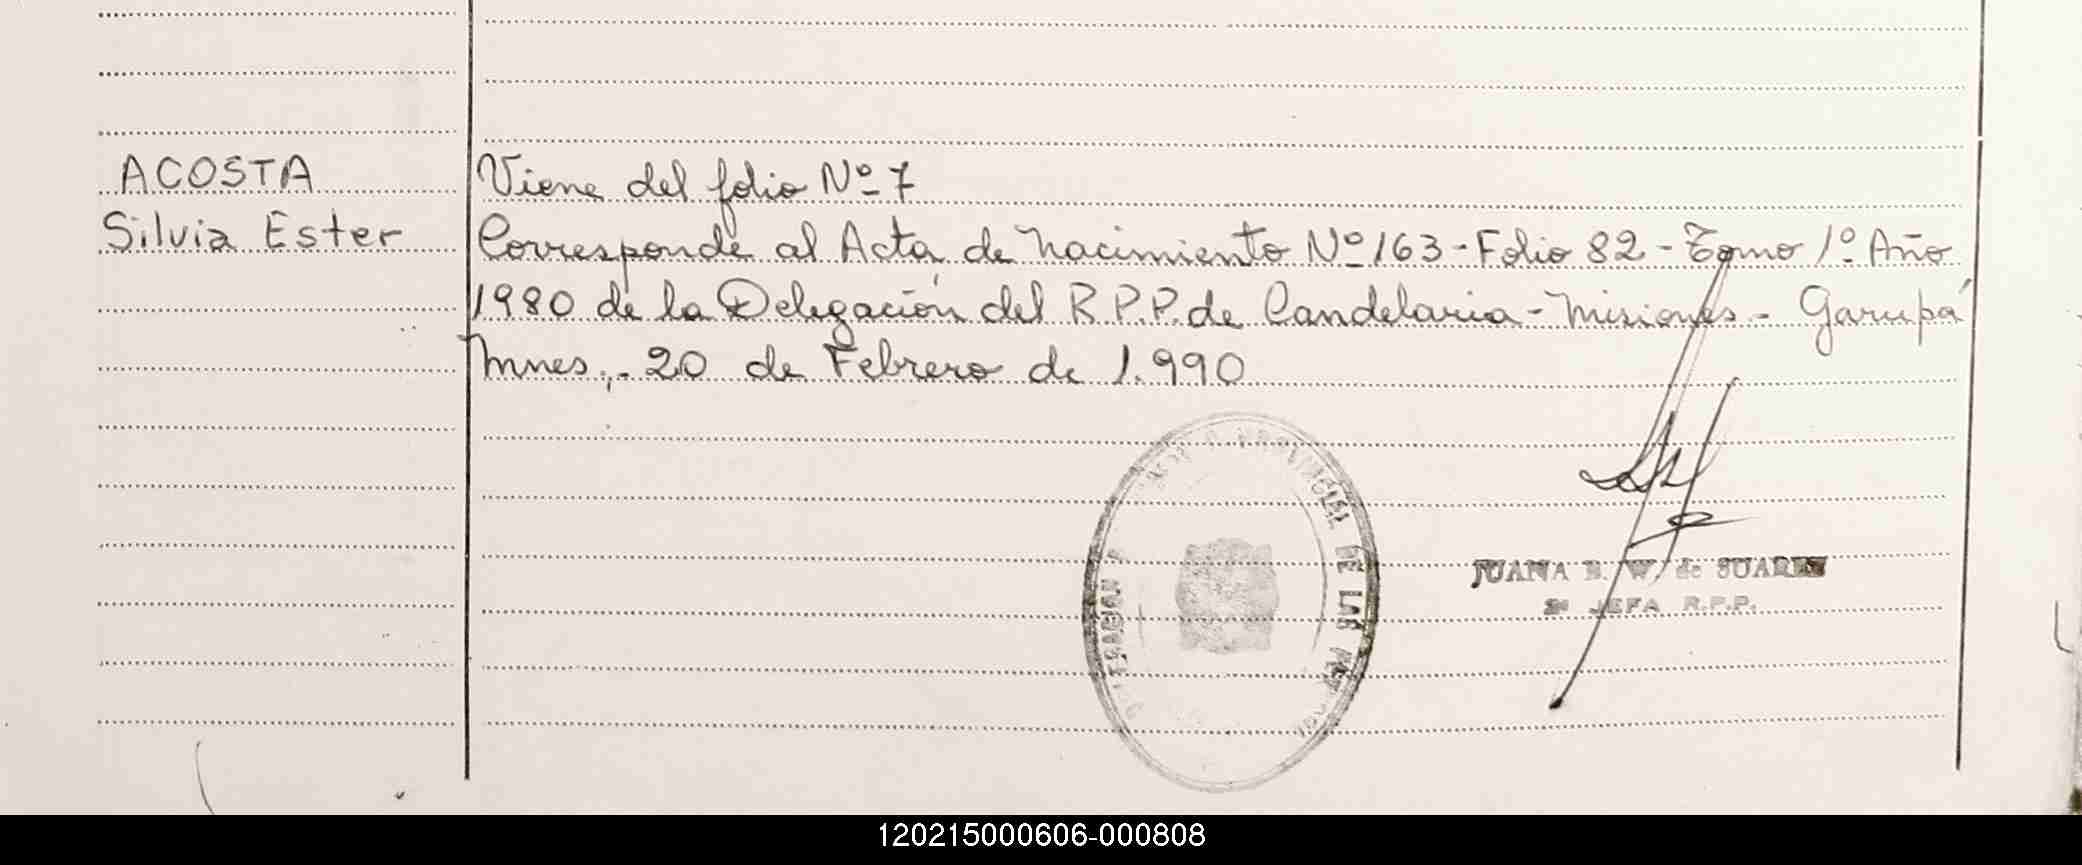 ACOSTA
Silvia Ester
Viene del folio Nº 7
Corresponde al Acta de Nacimiento Nº 163 - Folio 82 - Tomo 1º Año
1980 de la Delegación del R.P.P. de Candelaria - Misiones - Garupá
Mnes,. 20 de Febrero de 1.990
PROVINCIAL DE LAS
JUANA B. W. de SUAREZ
JEFA R.P.P.
120215000606-000808